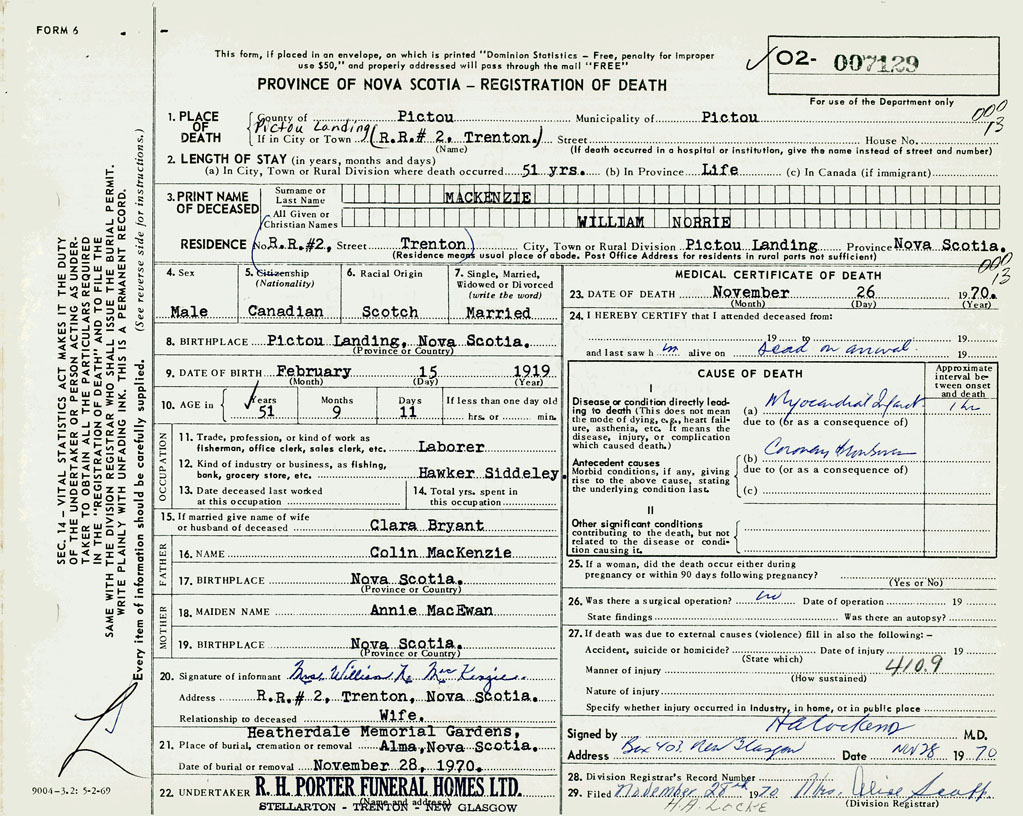 FORM 6
This form, if placed in an envelope, on which is printed "Dominion Statistics – Free, penalty for improper
use $50," and properly addressed will pass through the mail "FREE"
O2- 007129
For use of the Department only
PROVINCE OF NOVA SCOTIA – REGISTRATION OF DEATH
000
13
1. PLACE OF DEATH
County of Pictou Municipality of Pictou
Pictou Landing
If in City or Town (R.R.# 2, Trenton.) Street House No.
(Name) (If death occurred in a hospital or institution, give the name instead of street and number)
2. LENGTH OF STAY (in years, months and days)
(a) In City, Town or Rural Division where death occurred 51 yrs. (b) In Province Life (c) In Canada (if immigrant)
3. PRINT NAME OF DECEASED
Surname or Last Name MACKENZIE
All Given or Christian Names WILLIAM NORRIE
RESIDENCE No. R.R.#2, Street Trenton City, Town or Rural Division Pictou Landing Province Nova Scotia.
(Residence means usual place of abode. Post Office Address for residents in rural parts not sufficient)
000
13
4. Sex
Male
5. Citizenship
(Nationality)
Canadian
6. Racial Origin
Scotch
7. Single, Married,
Widowed or Divorced
(write the word)
Married
8. BIRTHPLACE Pictou Landing, Nova Scotia.
(Province or Country)
9. DATE OF BIRTH February 15 1919
(Month) (Day) (Year)
10. AGE in
Years Months Days If less than one day old
51 9 11 hrs. or min.
OCCUPATION
11. Trade, profession, or kind of work as
fisherman, office clerk, sales clerk, etc. Laborer
12. Kind of industry or business, as fishing,
bank, grocery store, etc. Hawker Siddeley.
13. Date deceased last worked
at this occupation
14. Total yrs. spent in
this occupation
15. If married give name of wife
or husband of deceased Clara Bryant
FATHER
16. NAME Colin MacKenzie
17. BIRTHPLACE Nova Scotia.
(Province or Country)
MOTHER
18. MAIDEN NAME Annie MacEwan
19. BIRTHPLACE Nova Scotia.
(Province or Country)
20. Signature of informant Mrs. William N. MacKenzie.
Address R.R.# 2, Trenton, Nova Scotia.
Relationship to deceased Wife.
Heatherdale Memorial Gardens,
21. Place of burial, cremation or removal Alma, Nova Scotia.
Date of burial or removal November 28, 1970.
22. UNDERTAKER R. H. PORTER FUNERAL HOMES LTD.
(Name and address)
STELLARTON - TRENTON - NEW GLASGOW
MEDICAL CERTIFICATE OF DEATH
23. DATE OF DEATH November 26 1970.
(Month) (Day) (Year)
24. I HEREBY CERTIFY that I attended deceased from:
19 19
and last saw h im alive on Dead on arrival 19
CAUSE OF DEATH
Approximate
interval be-
tween onset
and death
I
Disease or condition directly lead-
ing to death (This does not mean
the mode of dying, e.g., heart fail-
ure, asthenia, etc. It means the
disease, injury, or complication
which caused death.)
(a) Myocardial Infarct 1 hr
due to (or as a consequence of)
Antecedent causes
Morbid conditions, if any, giving
rise to the above cause, stating
the underlying condition last.
(b) Coronary thrombosis
due to (or as a consequence of)
(c)
II
Other significant conditions
contributing to the death, but not
related to the disease or condi-
tion causing it.
25. If a woman, did the death occur either during
pregnancy or within 90 days following pregnancy?
(Yes or No)
26. Was there a surgical operation? no Date of operation 19
State findings Was there an autopsy?
27. If death was due to external causes (violence) fill in also the following: –
Accident, suicide or homicide? Date of injury 19
(State which)
Manner of injury 410.9
(How sustained)
Nature of injury
Specify whether injury occurred in Industry, in home, or in public place
Signed by M.D.
Address Box 403, New Glasgow Date Nov 28 1970
28. Division Registrar's Record Number
29. Filed November 28th 1970 Mrs. Alice Scott.
(Division Registrar)
H.A. LOCKE
SEC. 14 – VITAL STATISTICS ACT MAKES IT THE DUTY
OF THE UNDERTAKER OR PERSON ACTING AS UNDER-
TAKER TO OBTAIN ALL THE PARTICULARS REQUIRED
IN THE "REGISTRATION OF DEATH" AND TO FILE THE
SAME WITH THE DIVISION REGISTRAR WHO SHALL ISSUE THE BURIAL PERMIT.
WRITE PLAINLY WITH UNFADING INK. THIS IS A PERMANENT RECORD.
Every item of information should be carefully supplied. (See reverse side for instructions.)
9004-3.2: 5-2-69